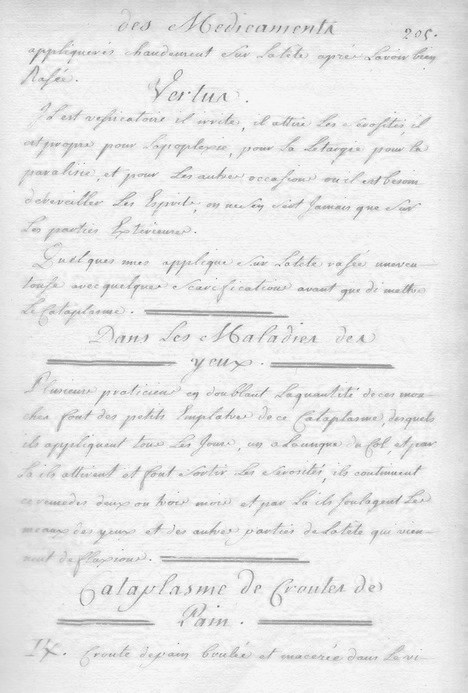 des Medicaments 205.
appliquerés chaudement sur latete aprés lavoir bien
Rasée.
Vertus.
Il est vesicatoire il irrite, il attire Les serosités il
est propre pour Lapoplexie, pour La Létargie pour la
paralisie, et pour Les autres occasions ou il est besoin
dereveiller Les Esprits, on ne sen sert Jamais que sur
Les parties Exterieures.
Quelques uns applique sur latete rasée uneven-
touse avec quelques scarifications avant que de mettre
Le Cataplasme.
Dans Les Maladies des
yeux.
Plusieurs praticiens en doublant Laquantité de ces
font des petits Emplatres dece Cataplasme, desquels
ils appliquent tous Les Jours, un alanuque du Col, et par
la ils attirent et font sortir Les serosités, ils continuent
ce remedes deux ou trois mois et par la ils soulagent Les
meaux des yeux et des autres parties de latete qui vien-
nent de fluxions.
Cataplasme de Croutes de
Pain.
Croute depain boulée et macerée dans Le vi-